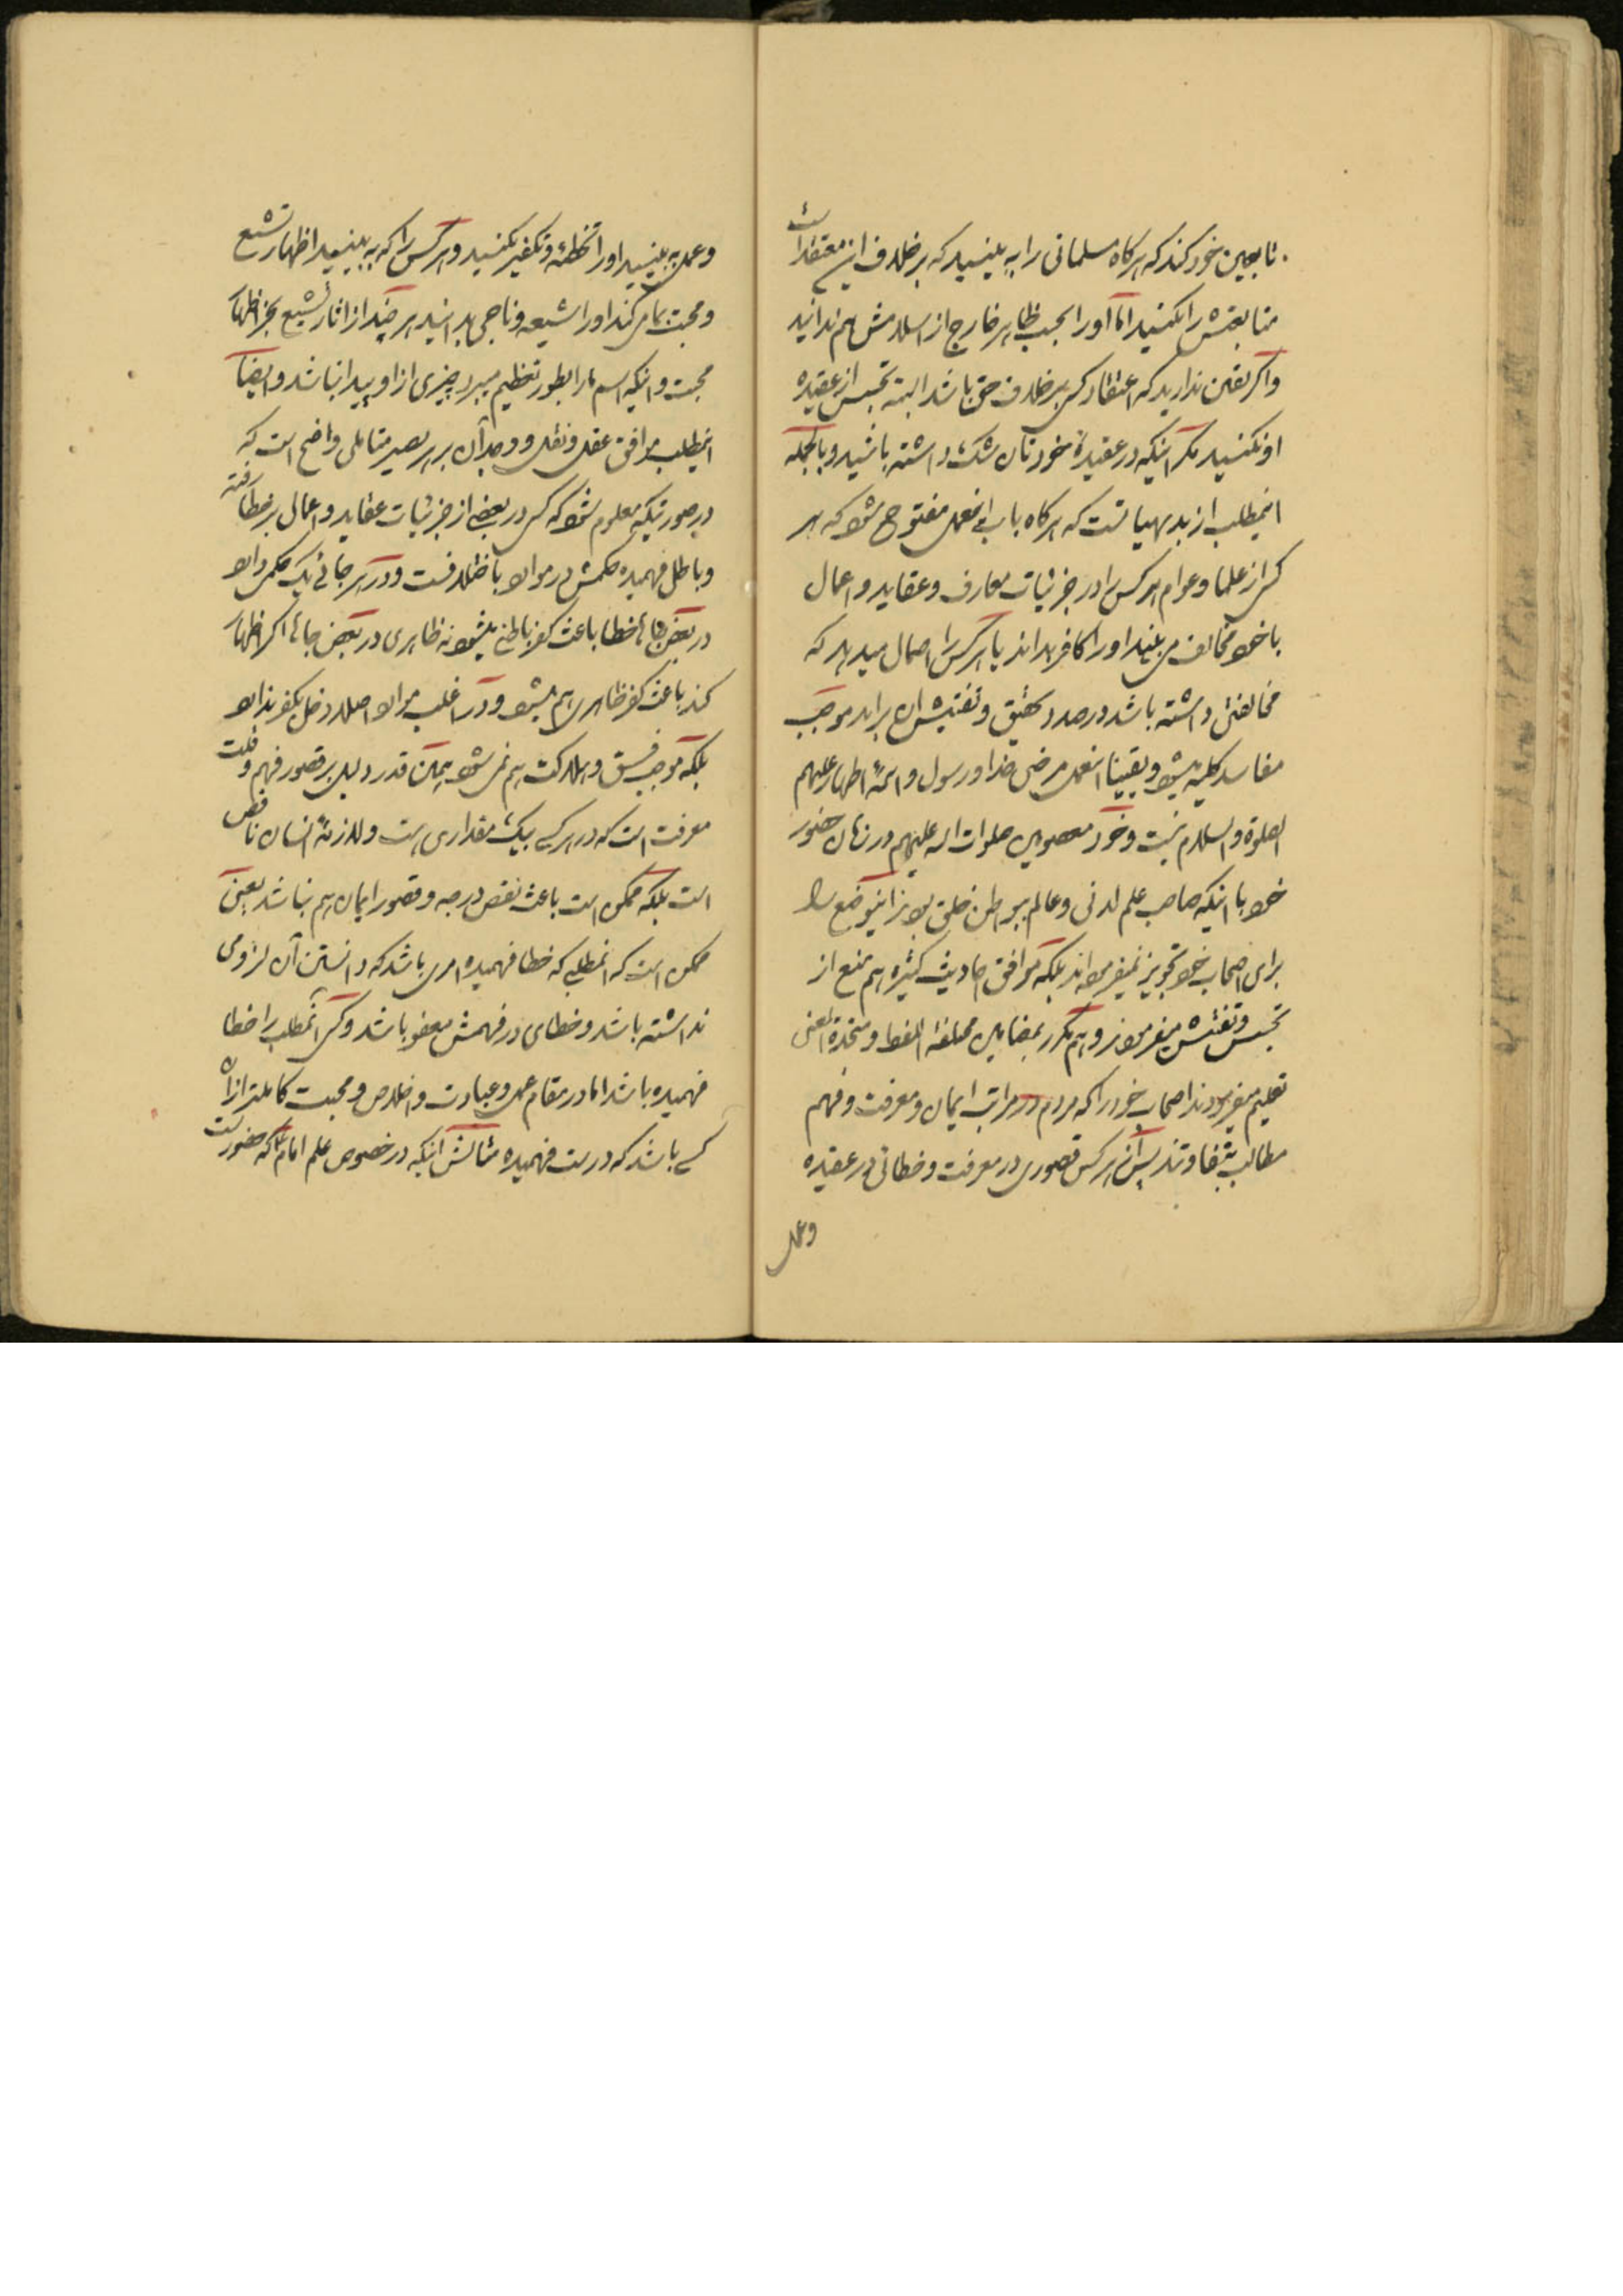 تابعین خود کند که هر کاه مسلمانی را به بینید که بر خلاف این معتقد است
متابعتش را نکنید اما او را بحسب ظاهر خارج از اسلامش هم ندانید
و اکر یقین ندارید که اعتقاد کسی بر خلاف حق باشد البته تجسس از عقیده
او نکنید مکر اینکه در عقیدهٔ خودتان شک داشته باشید و بالجمله
اینمطلب از بدیهیاتست که هر کاه باب اینعمل مفتوح شود که هر
کسی از علما و عوام هر کس را در جزئیات معارف و عقاید و اعمال
با خود مخالف می بیند او را کافر بداند یا هر کس را احتمال میدهد که
مخالفتی داشته باشد در صدد تحقیق و تفتیش او براید موجب
مفاسد کلیه میشود و یقینا اینعمل مرضی خدا و رسول و ائمهٔ اطهار علیهم
الصلوة و السلام نیست و خود معصومین صلوات الله علیهم در زمان حضور
خود با اینکه صاحب علم لدنی و عالم ببواطن خلق بودند اینوضع را
برای اصحاب خود تجویز نمیفرموده اند بلکه موافق احادیث کثیره هم منع از
تجسس و تفتیش میفرمودند و هم مکرر بمضامین مختلفة اللفظ و متحدة المعنی
تعلیم میفرمودند اصحاب خود را که مردم در مراتب ایمان و معرفت و فهم
مطالب متفاوتند پس اگر از هر کس قصوری در معرفت و خطائی در عقیده
و عمل
و عمل به بینید او را تخطئه و تکفیر نکنید و هر کس را که به بینید اظهار تشیع
و محبت بما می کند او را شیعه و ناجی بدانید هر چند از اثار تشیع بجز اظهار
محبت و اینکه اسم ما را بطور تعظیم میبرد چیزی از او پیدا نباشد و ایضا
اینمطلب موافق عقل و نقل و وجدان بر هر بصیر متاملی واضح است که
در صورتیکه معلوم شود که کسی در بعضی از جزئیات عقاید و اعمال بر خطا رفته
و باطل فهمیده حکمش در موارد با اختلافست و در هر جائی یک حکمی دارد
در بعض جاها خطا باعث کفر باطنی میشود نه ظاهری در بعض جاها اکر اظهار
کند باعث کفر ظاهری هم میشود و در اغلب موارد اصلا دخل بکفر ندارد
بلکه موجب فسق و هلاکت هم نمی شود همین قدر دلیل بر قصور فهم و قلت
معرفت است که در هر کسی بیک مقداری هست و لازمهٔ انسان ناقص
است بلکه ممکن است باعث نقص درجه و قصور ایمان هم نباشد یعنی
ممکن است که انمطلبی که خطا فهمیده امری باشد که دانستن آن لزومی
نداشته باشد و خطای در فهمش معفو باشد و کسی آنمطلب را خطا
فهمیده باشد اما در مقام عمل و عبادت و اخلاص و محبت کاملتر از آن
کسی باشد که درست فهمیده مثالش اینکه در خصوص علم امام که حضوریست